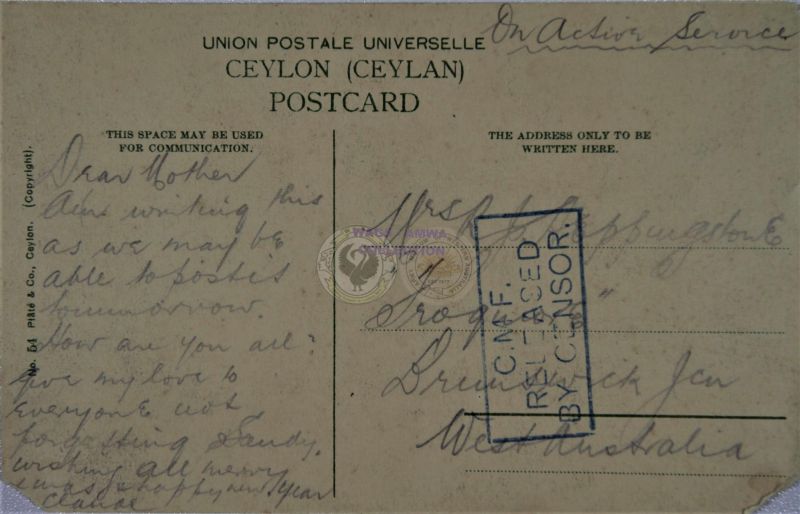 On Active Service
UNION POSTALE UNIVERSELLE
CEYLON (CEYLAN)
POSTCARD
THIS SPACE MAY BE USED
FOR COMMUNICATION.
THE ADDRESS ONLY TO BE
WRITTEN HERE.
No. 54 Plâté & Co., Ceylon. (Copyright).
Dear Mother
Am writing this
as we may be
able to post it
tomorrow.
How are you all?
Give my love to
everyone not
forgetting Sandy.
wishing all merry
xmas & happy new year
Claude
Mrs
Brunswick Jcn
West Australia
C.M.F.
RELEASED
BY CENSOR.
WAGS AMWA
COLLECTION